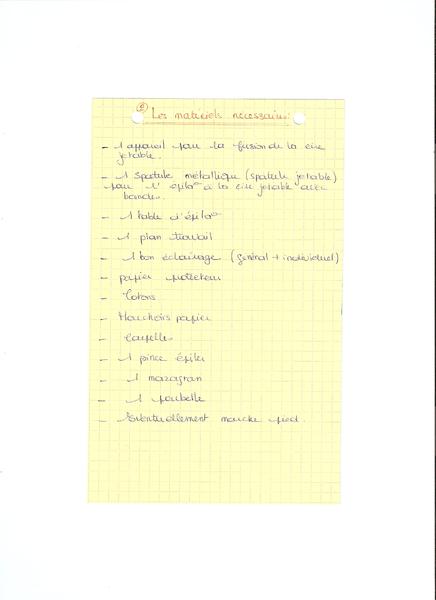 Les matériels nécessaires:
- 1 appareil pour la fusion de la cire
jetable.
- 1 spatule métallique (spatule jetable)
pour l' épilaº à la cire jetable avec
bandes.
- 1 table d'épilaº
- 1 plan travail
- 1 bon éclairage (général + individuel)
- papier protecteur
- Cotons
- Mouchoirs papier
- Coupelles
- 1 pince épiler
- 1 mazagran
- 1 poubelle
- Eventuellement marche pied.